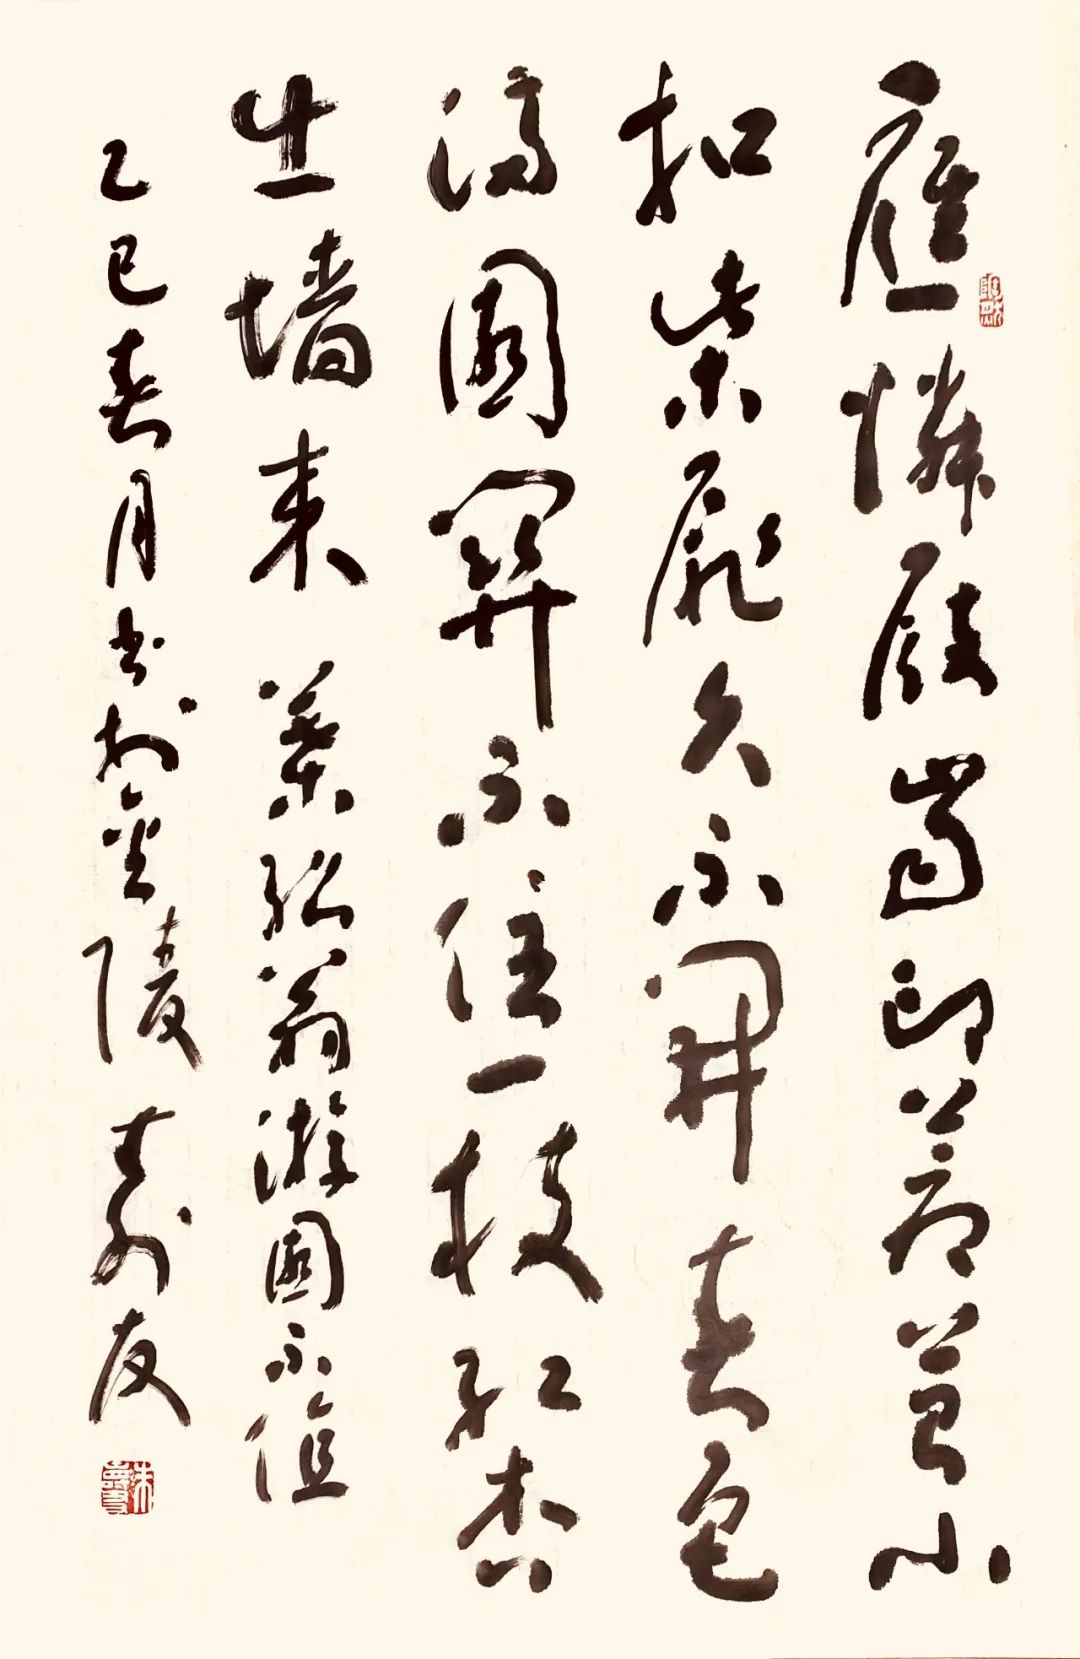 應憐屐齒印蒼苔小
扣柴扉久不開春色
滿園關不住一枝紅杏
出墙來 葉紹翁游園不值
乙巳春月书於金陵 寿友